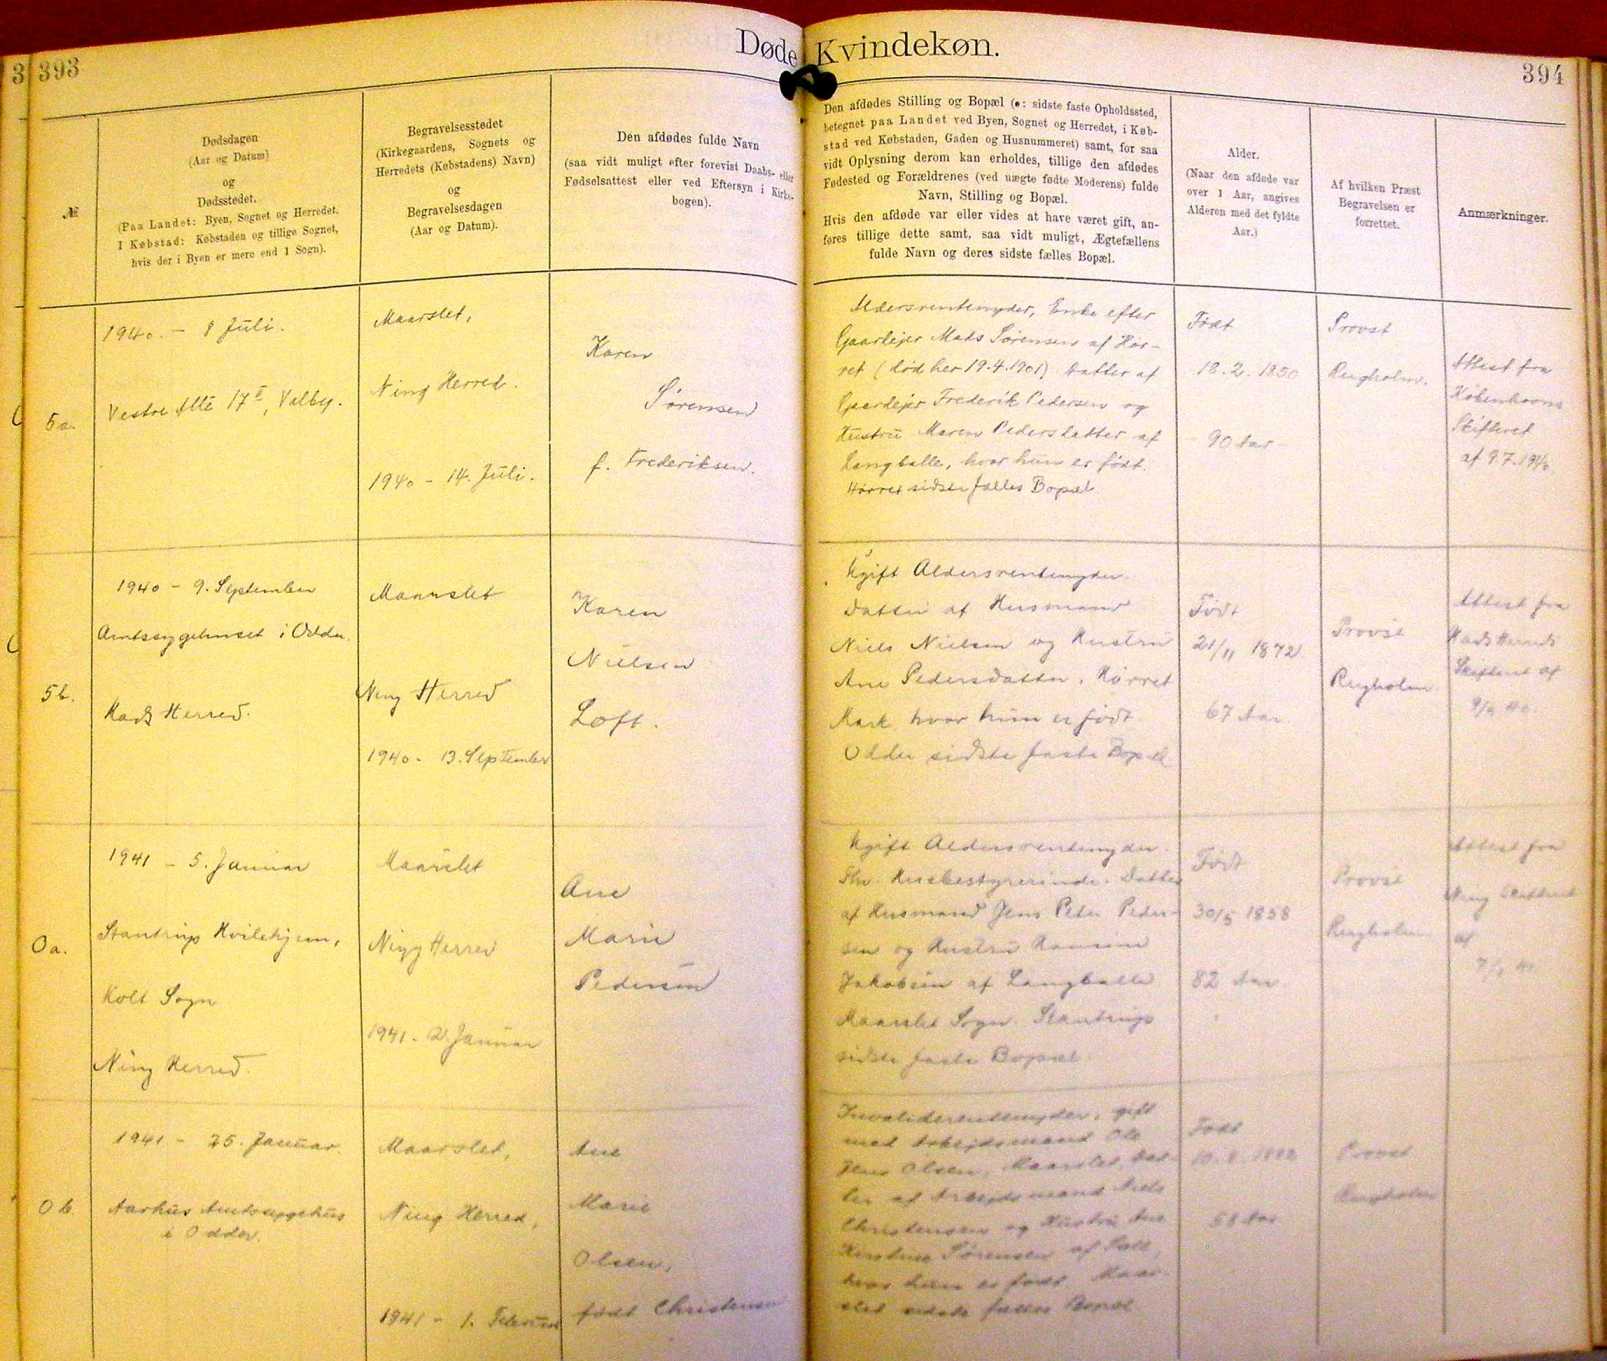 Døde Kvindekøn.
3 393
394
№
Dødsdagen
(Aar og Datum)
og
Dødsstedet.
(Paa Landet: Byen, Sognet og Herredet.
I Købstad: Købstaden og tillige Sognet,
hvis der i Byen er mere end 1 Sogn).
Begravelsesstedet
(Kirkegaardens, Sognets og
Herredets (Købstadens) Navn)
og
Begravelsesdagen
(Aar og Datum).
Den afdødes fulde Navn
(saa vidt muligt efter forevist Daabs- eller
Fødselsattest eller ved Eftersyn i Kirke-
bogen).
Den afdødes Stilling og Bopæl (ɔ: sidste faste Opholdssted,
betegnet paa Landet ved Byen, Sognet og Herredet, i Køb-
stad ved Købstaden, Gaden og Husnummeret) samt, for saa
vidt Oplysning derom kan erholdes, tillige den afdødes
Fødested og Forældrenes (ved uægte fødte Moderens) fulde
Navn, Stilling og Bopæl.
Hvis den afdøde var eller vides at have været gift, an-
føres tillige dette samt, saa vidt muligt, Ægtefællens
fulde Navn og deres sidste fælles Bopæl.
Alder.
(Naar den afdøde var
over 1 Aar, angives
Alderen med det fyldte
Aar.)
Af hvilken Præst
Begravelsen er
forrettet.
Anmærkninger.
5a.
1940. - 8 Juli.
Vestre Allé 17 , Valby.
Maarslet,
Ning Herred.
1940 - 14. Juli.
Karen
Sørensen
f. Frederiksen.
Aldersrentenyder, Enke efter
Gaardejer Mads Sørensen af Hør-
ret (død her 19.4.1901) Datter af
Gaardejer Frederik Pedersen og
Hustru Maren Pedersdatter af
Langballe, hvor hun er født.
Hørret sidste fælles Bopæl
Født
18. 2. 1850
90 Aar
Provst
Rugholm.
Attest fra
Københavns
Skifteret
af 9.7.1940.
5b.
1940 - 9. September
Amtssygehuset i Odder.
Hads Herred.
Maarslet
Ning Herred
1940 - 13. September
Karen
Nielsen
Loft.
Ugift Aldersrentenyder.
Datter af Husmand
Niels Nielsen og Hustru
Ane Pedersdatter, Hørret
Mark, hvor hun er født.
Odder sidste faste Bopæl
Født
21/11 1872
67 Aar
Provst
Rugholm
Attest fra
Hads Herreds
Skifteret af
9/9 40.
0a.
1941 - 5. Januar
Stautrup Hvilehjem,
Kolt Sogn
Ning Herred.
Maarslet
Ning Herred
1941 - Januar
Ane
Marie
Pedersen
Ugift Aldersrentenyder.
Fhv. Husbestyrerinde. Datter
af Husmand Jens Peter Peder-
sen og Hustru
Jakobsen af Langballe
Maarslet Sogn. Stautrup
sidste faste Bopæl.
Født
30/5 1858
82 Aar
Provst
Rugholm
Attest fra
Ning Skifteret
af
7/1 41
0b.
1941 - 25. Januar.
Aarhus Amtssygehus
i Odder.
Maarslet,
Ning Herred,
1941 - 1. Februar
Ane
Marie
Olsen,
født Christensen
Invaliderentenyder, gift
med Arbejdsmand Ole
Jens Olsen, Maarslet, Dat-
ter af Arbejdsmand Niels
Christensen og Hustru Ane
Kirstine Sørensen af
hvor hun er født. Maar-
slet sidste fælles Bopæl.
Født
1882
58 Aar
Provst
Rugholm